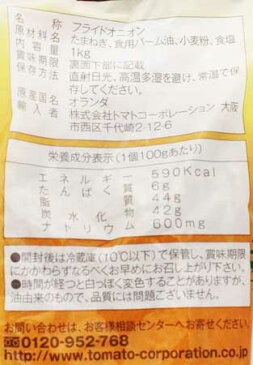 名称 フライドオニオン
原材料名 たまねぎ、食用パーム油、小麦粉、食塩
内容量 1kg
賞味期限 裏面下部に記載
保存方法 直射日光、高温多湿を避け、常温で保存してください。
原産国名 オランダ
輸入者 株式会社トマトコーポレーション 大阪
市西区千代崎2-12-6
栄養成分表示(1個100gあたり)
エネルギー 590Kcal
たんぱく質 6g
脂質 44g
炭水化物 42g
ナトリウム 600mg
●開封後は冷蔵庫(10℃以下)で保管し、賞味期限
にかかわらずなるべくお早めにお召し上がり下さい。
●時間が経つと白っぽく変色することがありますが、
油由来のもので、品質には問題ございません。
お問い合わせは、お客様相談センターへお寄せください。
0120-952-768
http://www.tomato-corporation.co.jp